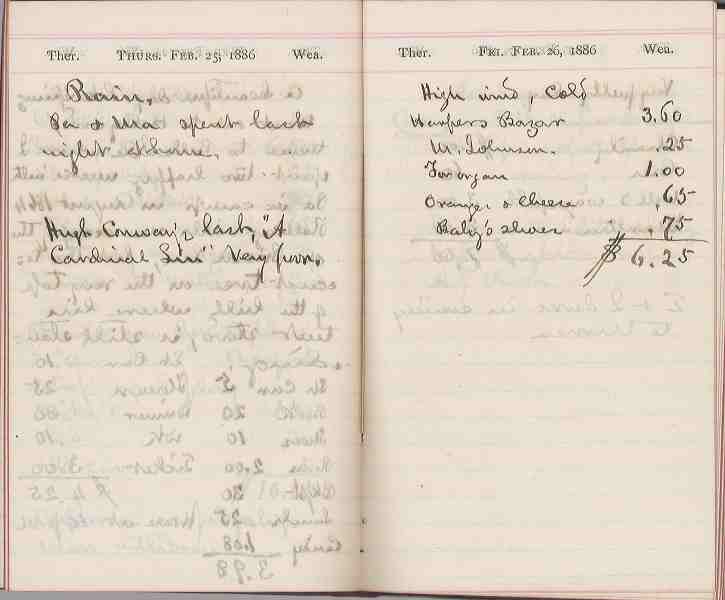 Ther. THURS. FEB. 25, 1886 Wea.
Rain.
Pa & Ma spent last
night at home.
Hugh Conway's last, "A
Cardinal Sin" Very poor.
Ther. FRI. FEB. 26, 1886 Wea.
High wind, Cold
Harpers Bazar 3.60
M. Johnson. .25
For organ 1.00
Oranges & cheese .65
Baby's shoes .75
$ 6.25